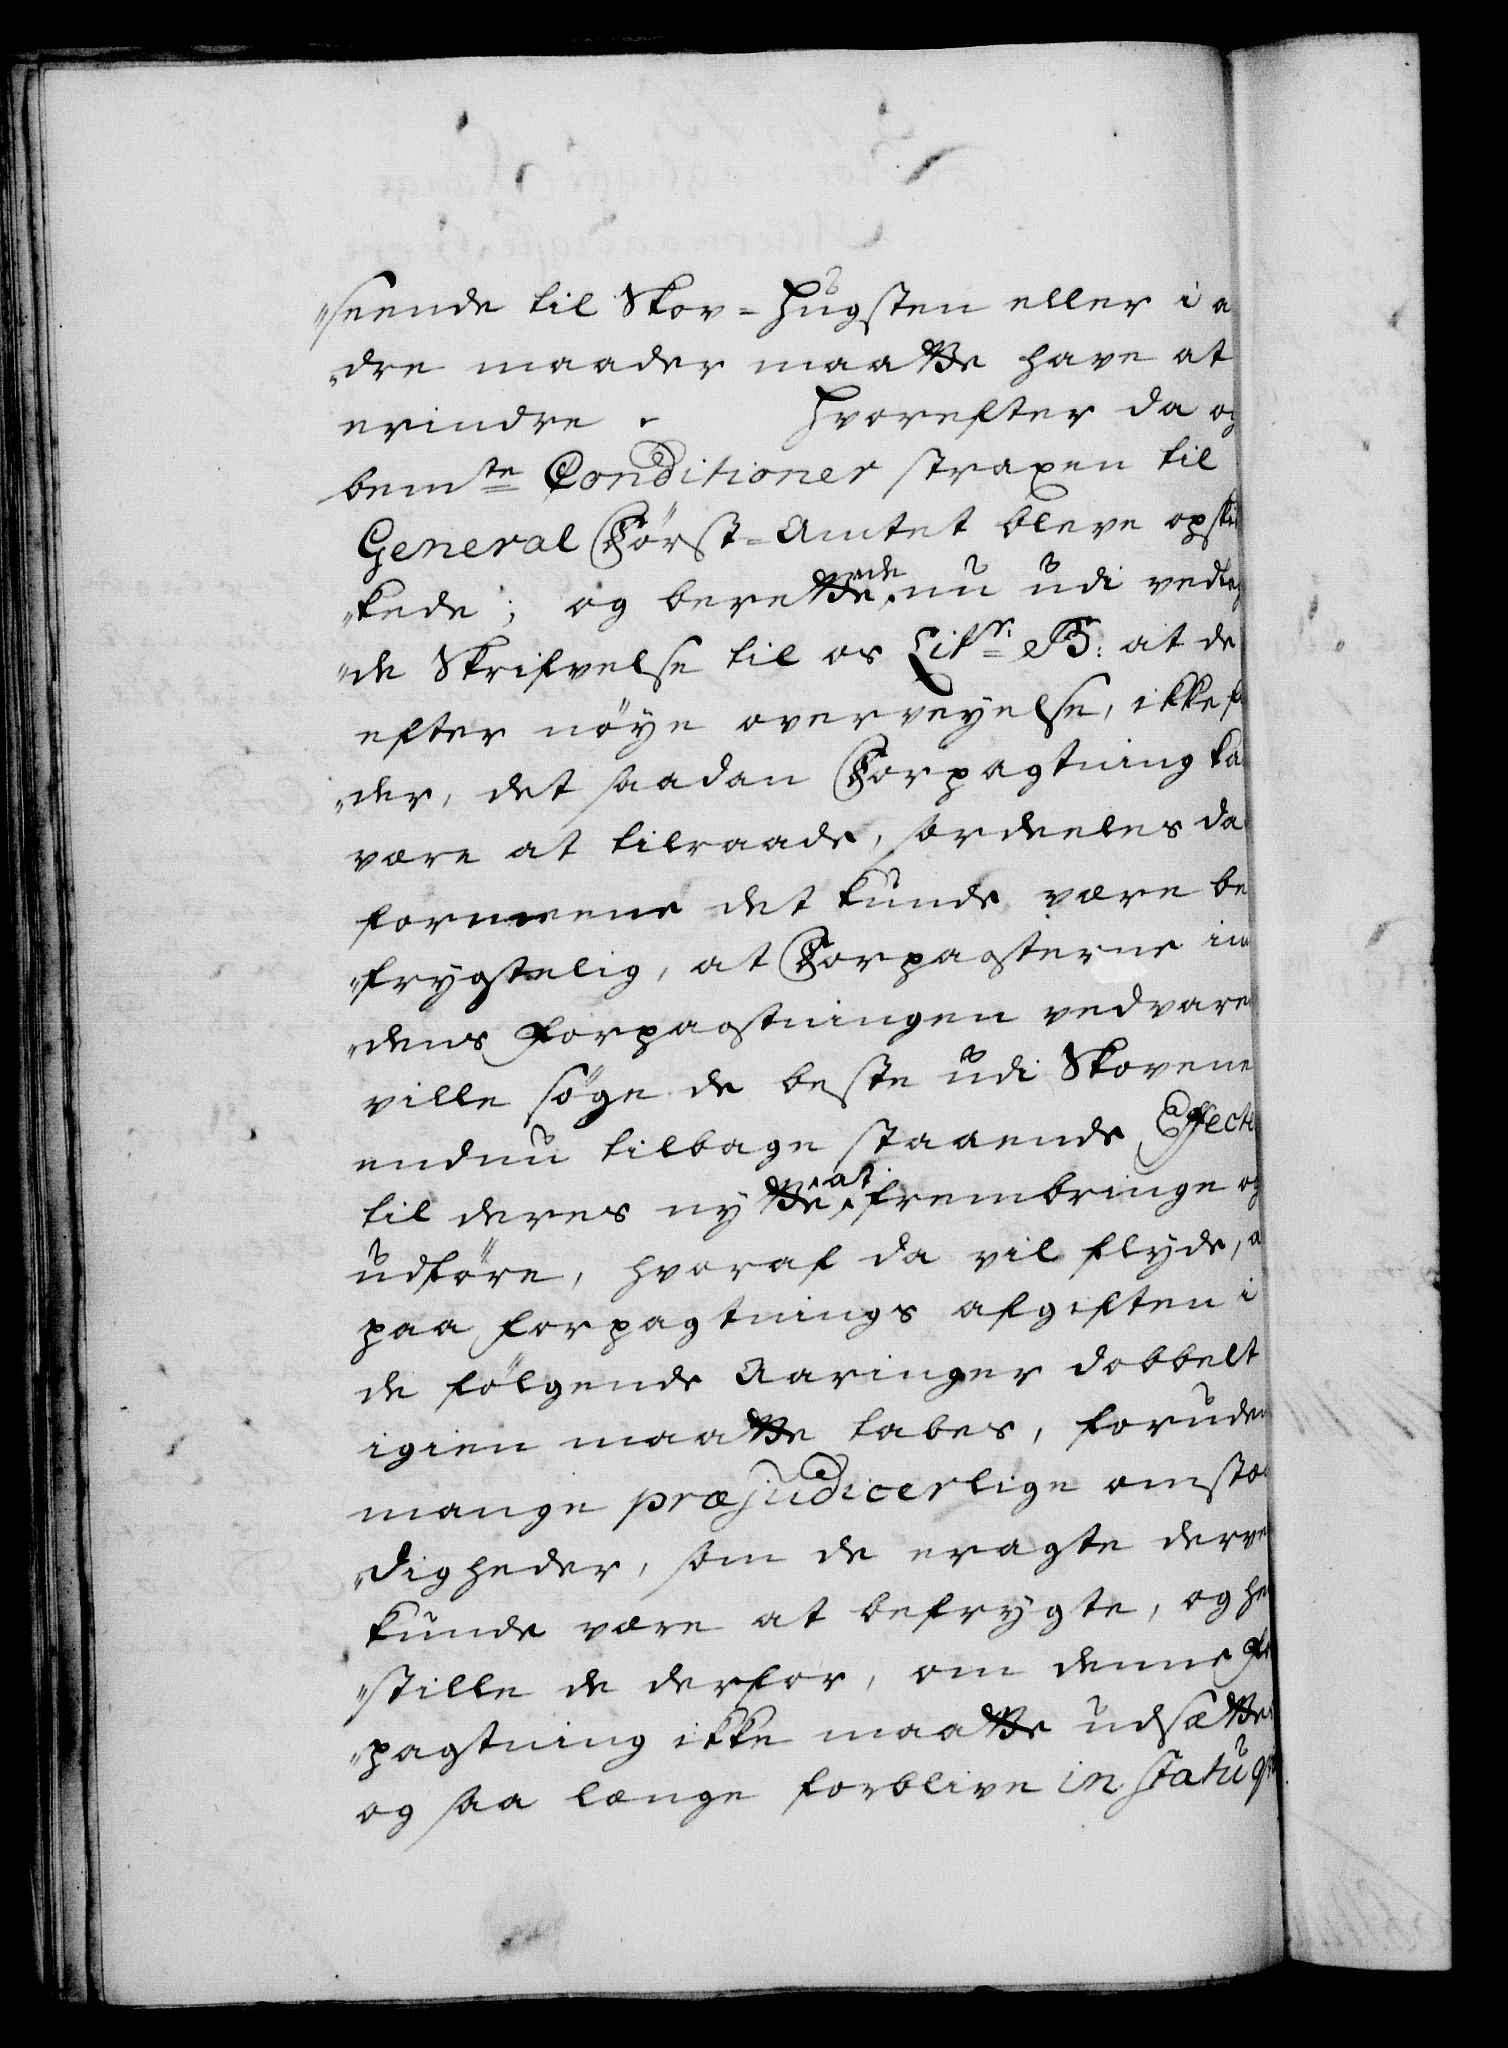 "seende til Skov-Hugsten eller i a
"dre maader maatte have at
erindre. Hvorefter da og
bemte Conditioner straxen til
General Först-Amtet bleve opski
"kede; og berettede nu udi vedlag
"de Skrifvelse til os Litr: B: at de
efter nöye overveyelse, ikke fi
"der, det saadan Forpagtning ka
være at tilraade, særdeeles da
formeene det kunde være be
"frygtelig, at Forpagterne in
"dens Forpagtningen vedvare
ville söge de beste udi Skovene
endnu tilbage staaende Effecte
til deres nytte at frembringe og
udföre, hvoraf da vil flyde, a
paa Forpagtnings afgiften i
de fölgende Aaringer dobbelt
igien maatte tabes, foruden
mange præjudicerlige omstæ
"digheder, som de eragte derve
kunde være at befrygte, og he
"stille de derfor, om denne Fo
"pagtning ikke maatte udsættes
og saa længe forblive in statu q